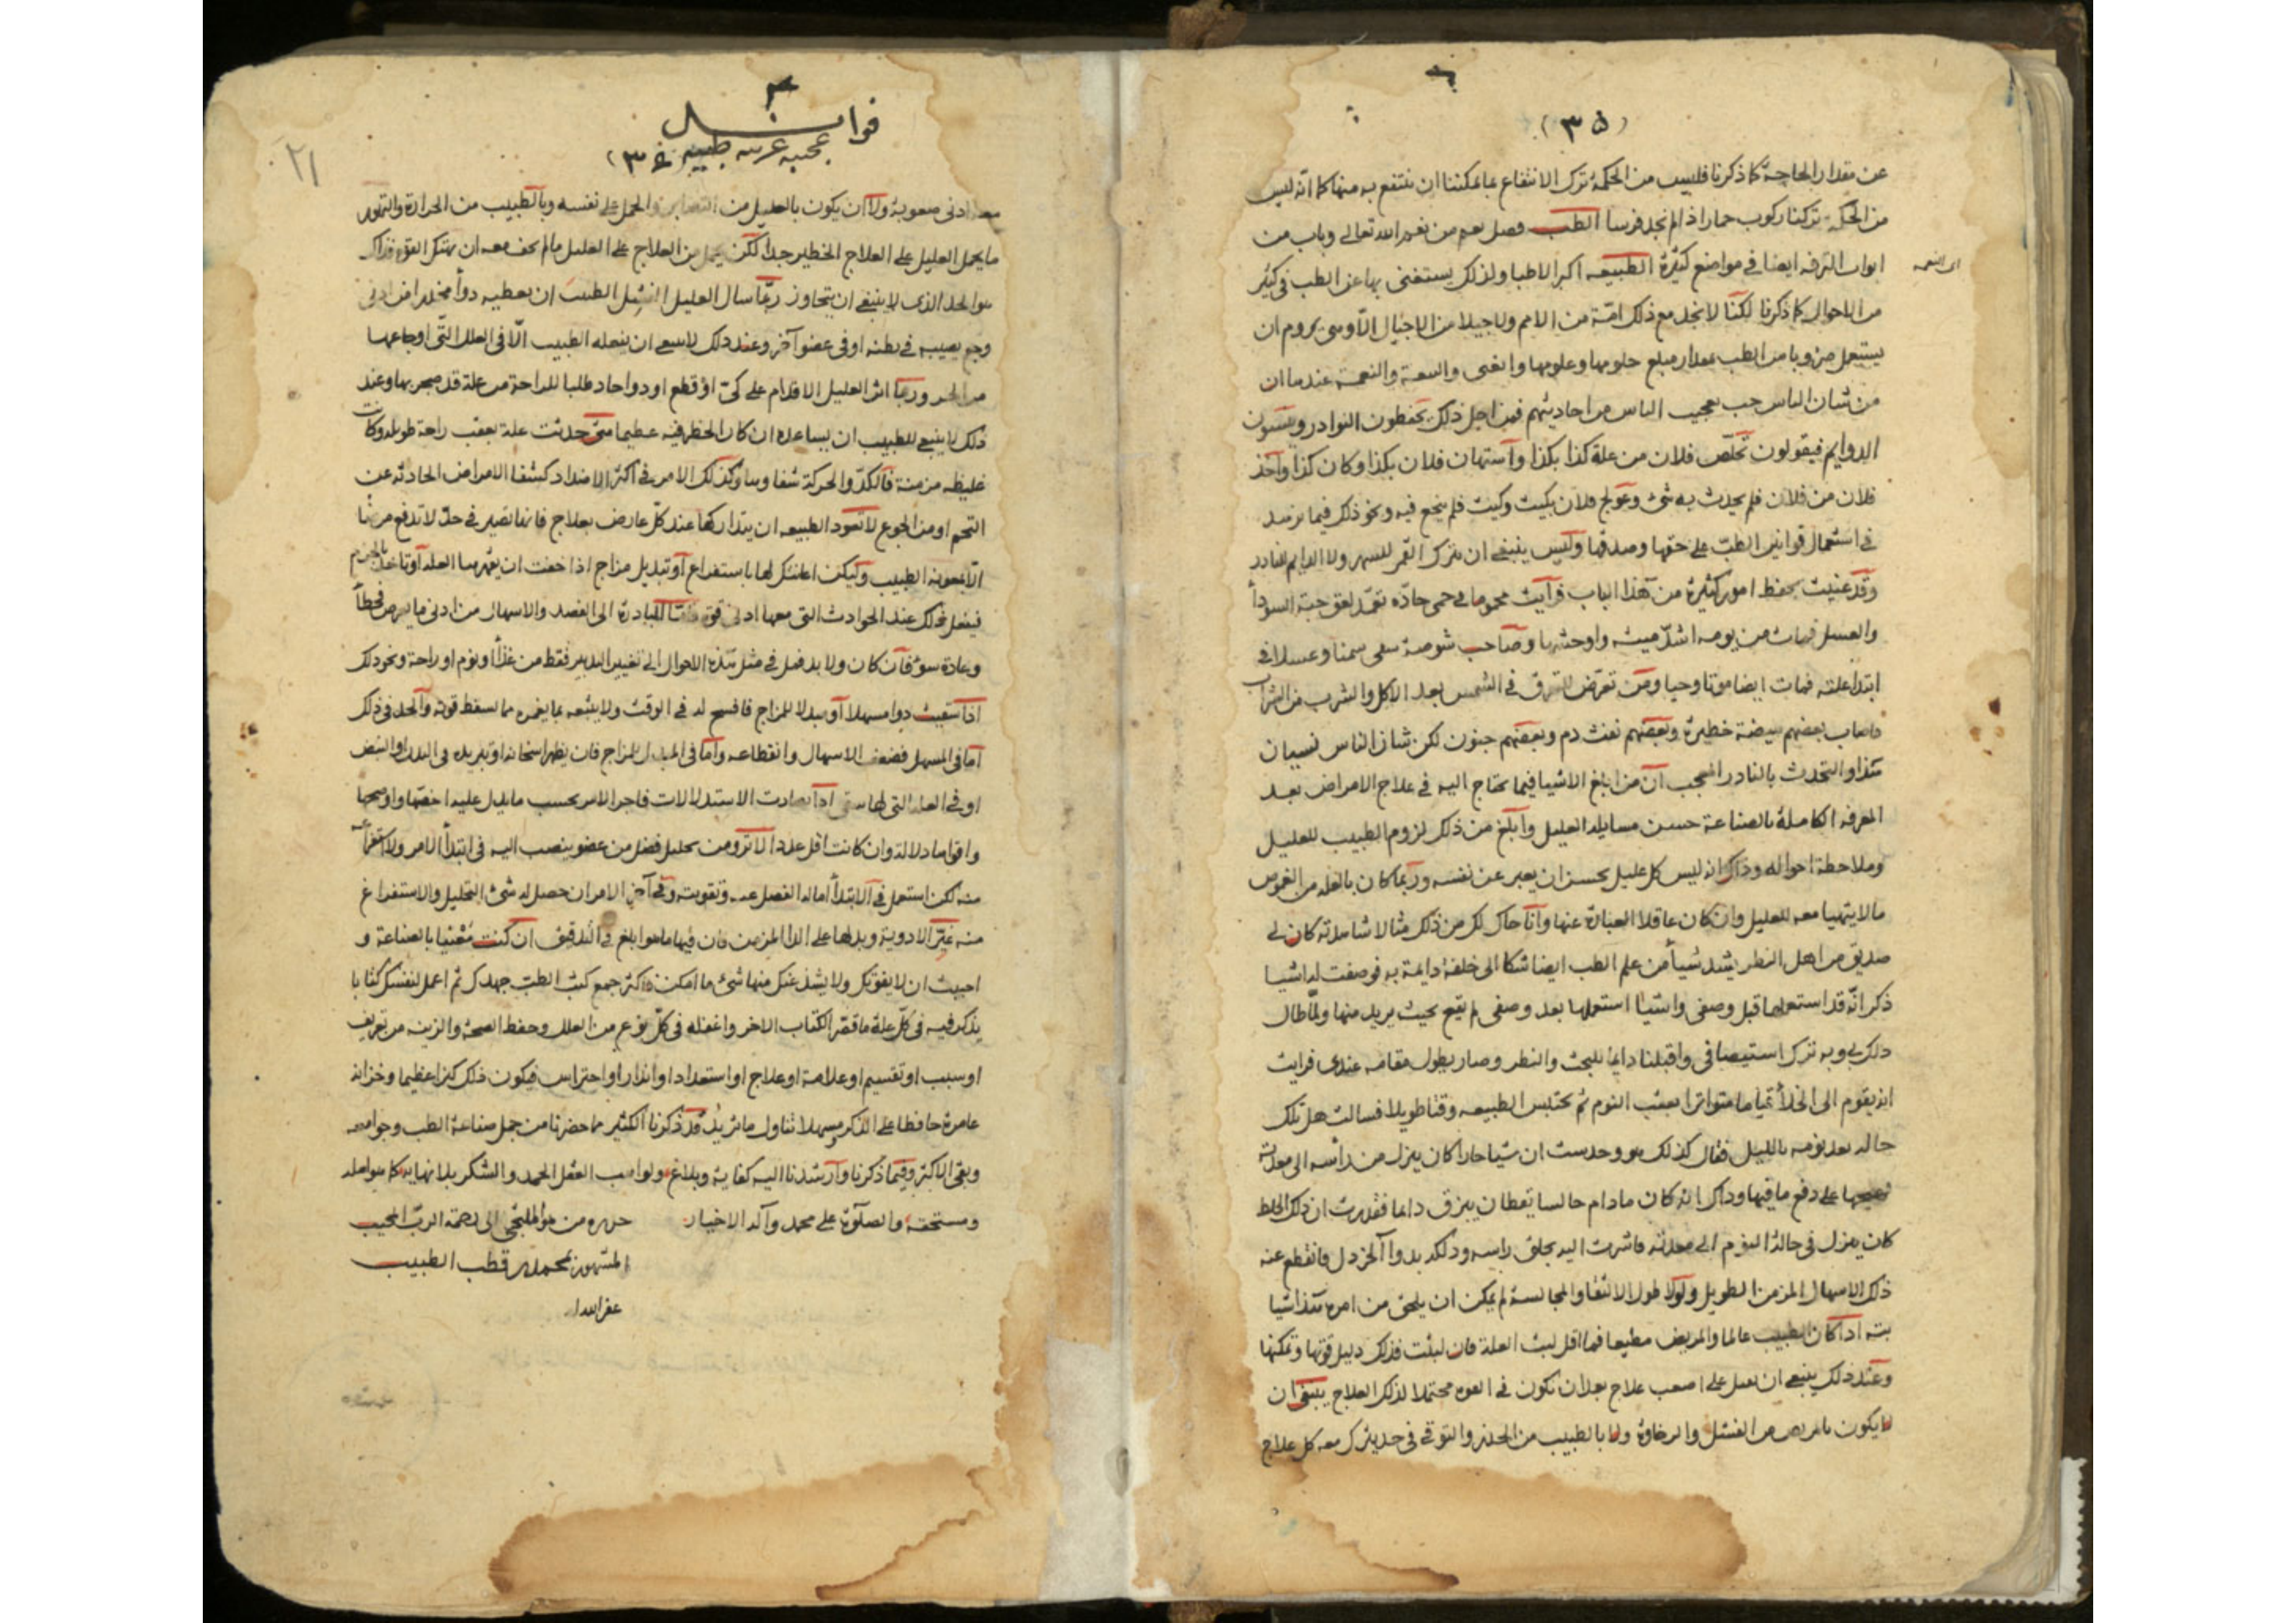 (٣٥)
عن مقدار الحاجة كما ذكرنا فليس من الحكمة ترك الانتفاع بما يمكننا ان ننتفع به منها كما انه ليس
من الحكمة تركنا ركوب حمار اذا لم نجد فرسا الطب فصل نعم من نعم الله تعالى وباب من
ابواب الترفه ايضا في مواضع كثيرة الطبيعه اكبر الاطبا ولذلك يستغنى بها عن الطب في كثير
من الاحوال كما ذكرنا لكنا لا نجد مع ذلك امة من الامم ولا جيلا من الاجيال الا وهى يروم ان
يستعمل ضروبا من الطب بمقدار مبلغ حلومها وعلومها والغنى والسعة والنعمة عندها ان
من شان الناس حب تعجيب الناس من احاديثهم فمن اجل ذلك يحفظون النوادر وينسون
الدوايم فيقولون تخلص فلان من علة كذا بكذا وآستهان فلان بكذا وكان كذا وآخذ
فلان من فلان فلم يحدث به شئ وعولج فلان بكيت وكيت فلم ينجع فيه ونحو ذلك فيما
في استعمال قوانين الطب على حقها وصدقها وليس ينبغى ان يترك القمر للسهى ولا الدايم للنادر
وقد عنيت بحفظ امور كثيرة من هذا الباب فرآيت محموما فى حمى حادة تعمد لعوق حبة السودآ
والعسل فمات من يومه اشد ميتة واوحشها وصاحب شوصة سقى سمنا وعسلا فى
ابتدا علته فمات ايضا موتا وحيا ومن تعرض للعرق في الشمس بعد الاكل والشرب من الشراب
فاصاب بعضهم هيضة خطيرة وبعضهم نفث دم وبعضهم جنون لكن شان الناس نسيان
هذا والتحدث بالنادر المعجب ان من ابلغ الاشيا فيما يحتاج اليه في علاج الامراض بعد
المعرفه الكاملة بالصناعة حسن مسايله العليل وآبلغ من ذلك لزوم الطبيب للعليل
وملاحظة احواله وذاك انه ليس كل عليل يحسن ان يعبر عن نفسه وربما كان بالعله من الغموض
مالا يتهيا معه للعليل وان كان عاقلا العبارة عنها وآنا حاك لك من ذلك مثالا شاهدته كان لى
صديق من اهل النظر يشد شيأ من علم الطب ايضا شكا الى خلفة دايمة به فوصفت له اشيا
ذكر انه قد استعملها قبل وصفى واشيا استعملها بعد وصفى لم يقع بحيث يريد منها ولما طال
ذلك بى وبه ترك استيصافى واقبلنا دايما للبحث والنظر وصار يطول مقامه عندى فرايت
انه يقوم الى الخلا قياما متواترا بعقب النوم ثم يحتبس الطبيعه وقتا طويلا فسالت هل تلك
حاله بعد نومه بالليل فقال كذلك هو وحدست ان شيا حادا كان ينزل من راسه الى معدته
على دفع ما فيها وذاك انه كان مادام جالسا يقظان يبزق دايما فقدرت ان ذلك الخلط
كان ينزل في حالة النوم الى معدته فاشرت اليه بحلق راسه ودلكه بدوا الخردل فانقطع عنه
ذلك الاسهال المزمن الطويل ولولا طول الالتقا والمجالسة لم يمكن ان يلحق من امره هذا شيا
بته اذا كان الطبيب عالما والمريض مطيعا فما اقل لبث العلة فان لبثت فذلك دليل قوتها وتمكنها
وعند ذلك ينبغى ان يعمل على اصعب علاج بعد ان تكون فى القوه محتملا لذلك العلاج ينبغى ان
لا يكون بالمريض من الفشل والرخاوة ولا بالطبيب من الحذر والتوقى فى حد يترك معه كل علاج
فوايد
عجيبه غريبه طبيه (٣٤)
٢١
معه ادنى صعوبة ولا ان يكون بالعليل من والحمل على نفسه وبالطبيب من الحرارة والتهور
ما يحمل العليل على العلاج الخطير جدا لكن يحمل من العلاج على العليل مالم يخف معه ان ينهتك القوة فذاك
هو الحد الذى لا ينبغى ان يتجاوز ربما سال العليل الطبيب ان يعطيه دوأ مخدرا من ادنى
وجع يصيبه في بطنه او فى عضو آخر وعند ذلك لا ينبغى ان يفعله الطبيب الا فى العلل التى اوجاعها
من الحر وربما اثر العليل الاقدام على كى او قطع او دوا حاد طلبا للراحة من علة قد ضجر بها وعند
ذلك لا ينبغى للطبيب ان يساعده ان كان الخطر فيه عظيما متى حدثت علة بعقب راحة طويله وكانت
غليظه مزمنة فالكد والحركة شفاوها وكذلك الامر فى اكثر الاضداد كشفا الامراض الحادثه عن
التخم او من الجوع لا تعود الطبيعه ان يتداركها عند كل عارض بعلاج فانها تصير فى حد لا تدفع مرضا
الا بمعونه الطبيب وليكن اعانتك لها باستفراغ او تبديل مزاج اذا خفت ان يقهرها العله
فيفعل ذلك عند الحوادث التى معها ادنى قوة فاما المبادرة الى الفصد والاسهال من ادنى ما يعرض فخطأ
وعادة سوء فان كان ولا بد فمل في مثل هذه الاحوال الى تغيير التدبير فقط من غذأ او نوم او راحة ونحو ذلك
اذا سقيت دوا مسهلا او مبدلا للمزاج فافسح له فى الوقت ولا يتبعه بما يغمره مما يسقط قوته وآلحد فى ذلك
آما فى المسهل فضعف الاسهال وانقطاعه وآما فى المبدل للمزاج فان يظهر اسخانه او تبريده فى البدن او النبض
او فى العله التى لها سقى اذا تضادت الاستدلالات فاجر الامر بحسب ما يدل عليه اخصها واوضحها
واقواها دلالة وان كانت اقل عددا لا ترومن تحليل فضل من عضو ينصب اليه فى ابتدأ الامر ولا استفراغه
منه لكن استعمل فى الابتدأ امالة الفضل عنه وتقويته وفى آخر الامر ان حصل له شئ التحليل والاستفراغ
منه غير الادوية وبدلها على الدا المزمن فان فيها ما هو ابلغ فى التدقيق ان كنت معتنيا بالصناعة و
احببت ان لا يفوتك ولا يشذ عنك منها شئ ما امكن فاكثر جمع كتب الطب جهدك ثم اعمل لنفسك كتابا
يذكر فيه فى كل علة ما قصر الكتاب الاخر واغفله فى كل نوع من العلل وحفظ الصحة والزينه من تعريف
او سبب او تقسيم او علامة او علاج او استعداد او انذار او احتراس فيكون ذلك كنزا عظيما وخزانة
عامرة حافظا على الذكر مسهلا تناول ما تريد قد ذكرنا الكثير مما حضرنا من جمل صناعة الطب وجوامعه
وبقى الاكثر وفيما ذكرنا وآرشدنا اليه كفاية وبلاغ ولواهب العقل الحمد والشكر بلا نهايه كما هو اهله
ومستحقه والصلوة على محمد وآله الاخيار
حرره من هو الملتجى الى رحمة الرب المجيب
المشهور بمحمد قطب الطبيب
عفر الله